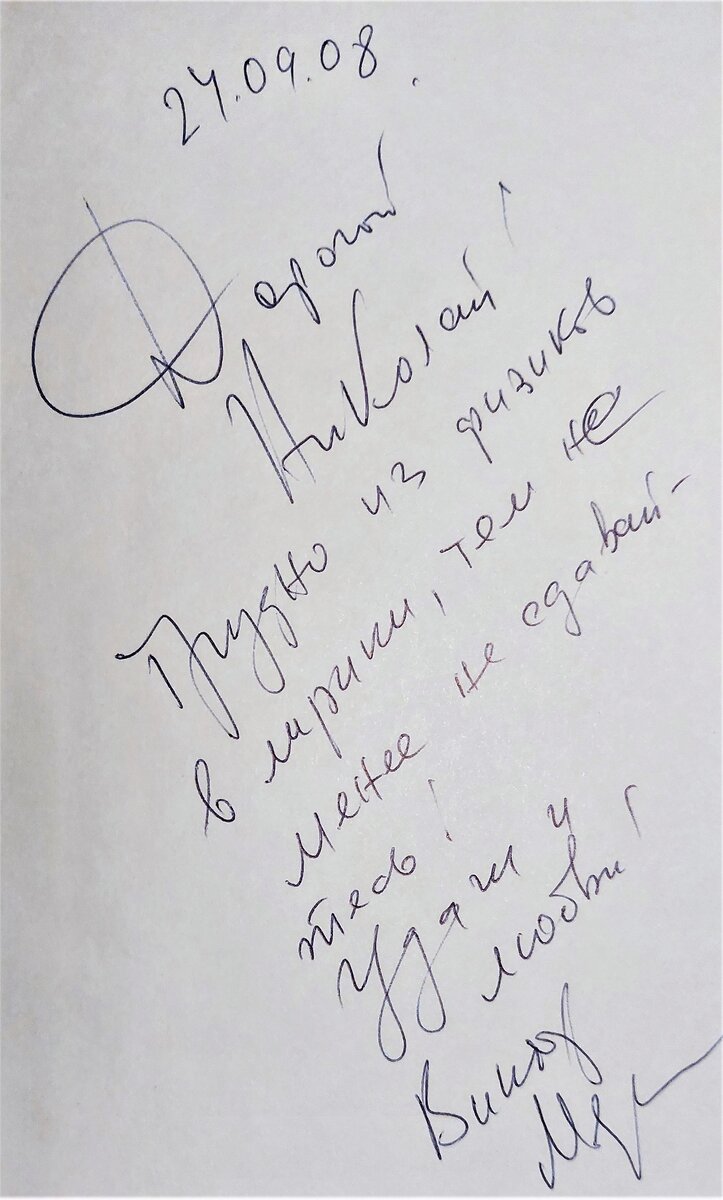 24.09.08.
Дорогой
Николай!
Трудно из физиков
в лирики, тем не
менее не сдавай-
тесь!
Удачи и
любви!
Виктор